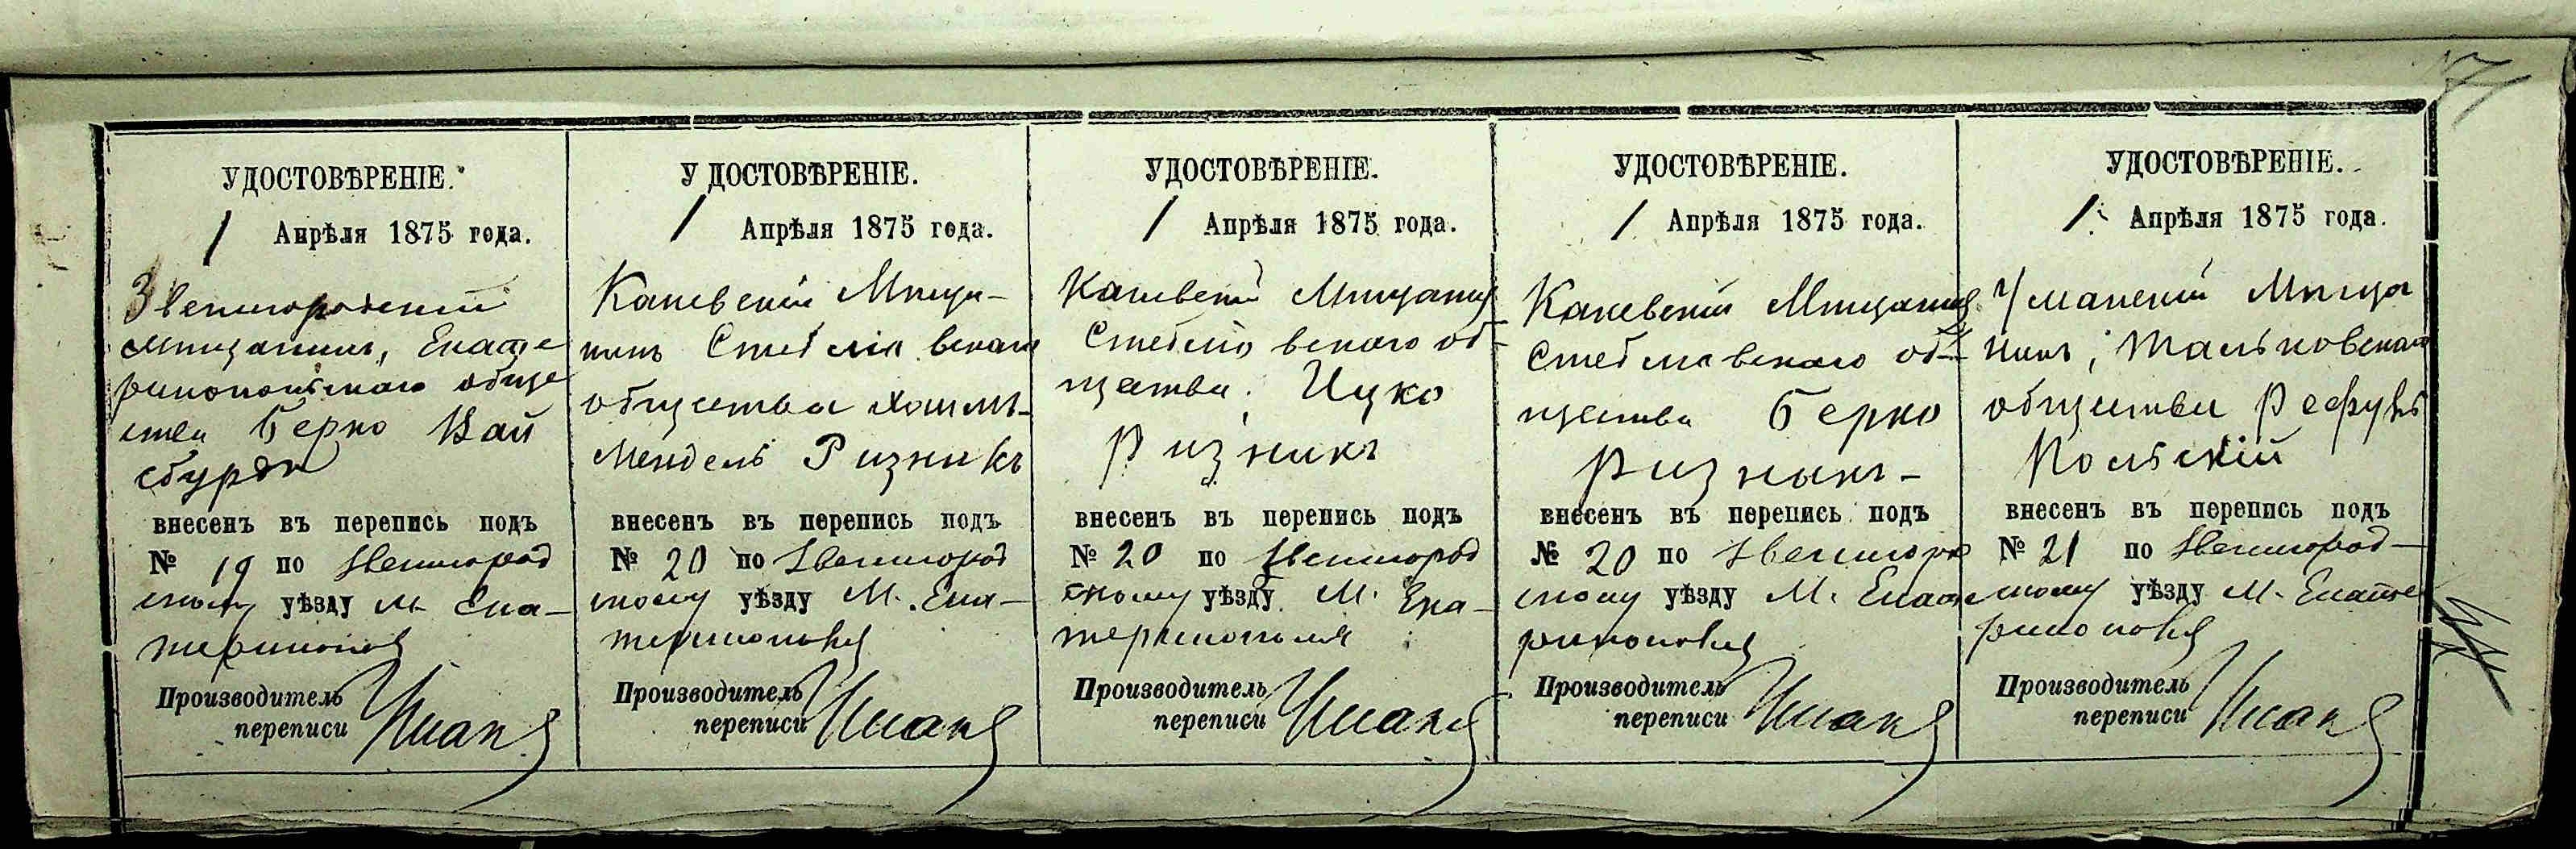 71
УДОСТОВѢРЕНІЕ.
1 Апрѣля 1875 года.
Звенигородскій
мѣщанинъ, Екате
ринопольскаго обще
ства Берко Вай
сбурдъ
внесенъ въ перепись подъ
№ 19 по Звенигород
скому уѣзду м. Ека-
теринополя
Производитель
переписи
УДОСТОВѢРЕНІЕ.
1 Апрѣля 1875 года.
Каневскій Мѣща-
нинъ Стеблевскаго
общества Хаимъ-
Мендель Ризникъ
внесенъ въ перепись подъ
№ 20 по Звенигород
скому уѣзду М. Ека-
теринополя
Производитель
переписи
УДОСТОВѢРЕНІЕ.
1 Апрѣля 1875 года.
Каневскій Мѣщанинъ
Стеблевскаго об-
щества, Ицко
Ризникъ
внесенъ въ перепись подъ
№ 20 по Звенигород
скому уѣзду М. Ека-
теринополя
Производитель
переписи
УДОСТОВѢРЕНІЕ.
1 Апрѣля 1875 года.
Каневскій Мѣщанинъ
Стеблевскаго об-
щества Берко
Ризникъ-
внесенъ въ перепись подъ
№ 20 по Звенигоро
скому уѣзду М. Екате
ринополя
Производитель
переписи
УДОСТОВѢРЕНІЕ.
1 Апрѣля 1875 года.
Уманскій Мѣща
нинъ, Тальновскаго
общества Рефулъ
Польскій
внесенъ въ перепись подъ
№ 21 по Звенигород-
скому уѣзду М. Екате
ринополя
Производитель
переписи